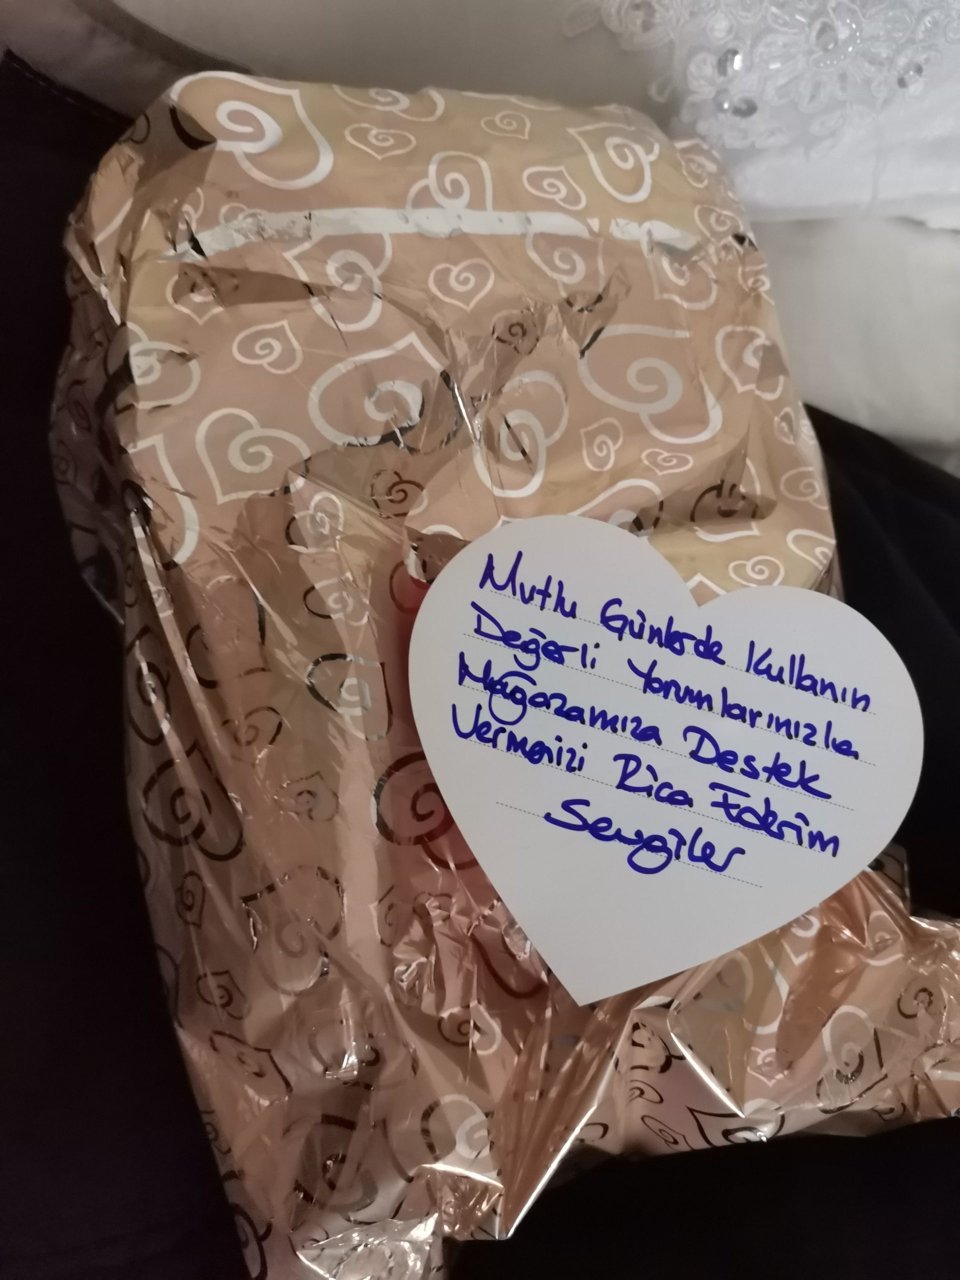 Mutlu Günlerde Kullanın
Değerli Yorumlarınızla
Mağazamıza Destek
Vermenizi Rica Ederim
Sevgiler